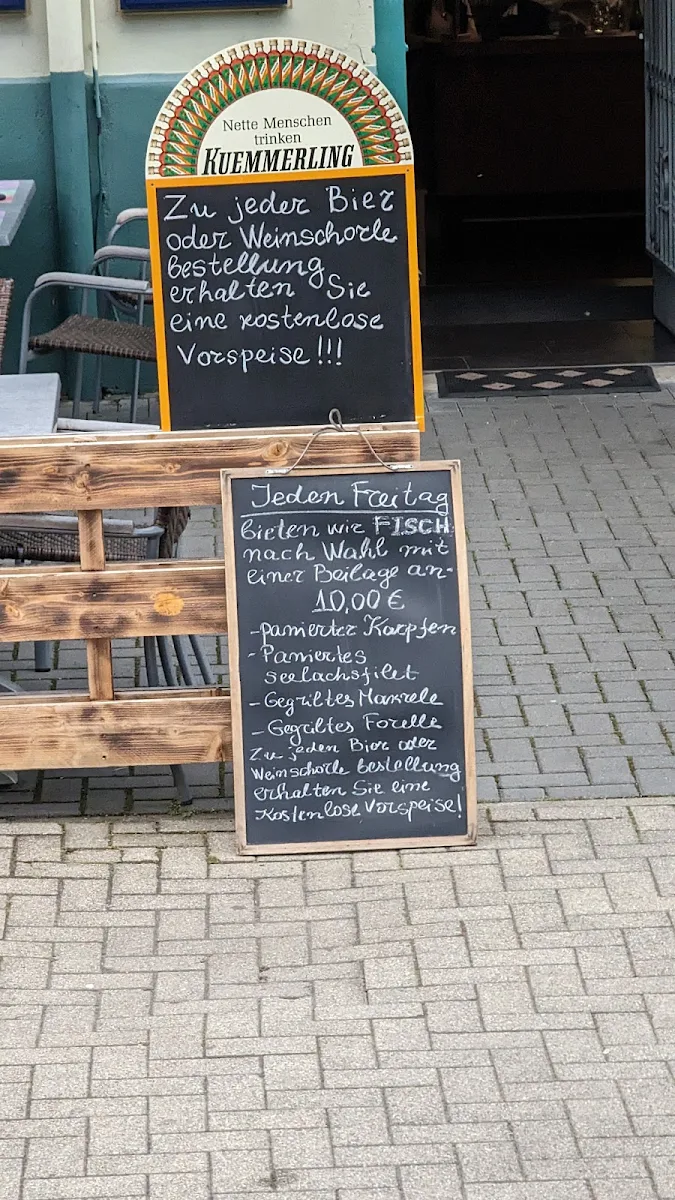 Nette Menschen
trinken
KUEMMERLING
Zu jeder Bier
oder Weinschorle
bestellung
erhalten Sie
eine kostenlose
Vorspeise!!!
Jeden Freitag
bieten wir FISCH
nach Wahl mit
einer Beilage an-
10,00 €
-panierter Karpfen
- Paniertes
seelachsfilet
- Gegrilltes Makrele
- Gegriltes Forelle
Zu jeden Bier oder
Weinschorle bestellung
erhalten Sie eine
Kostenlose Vorspeise!